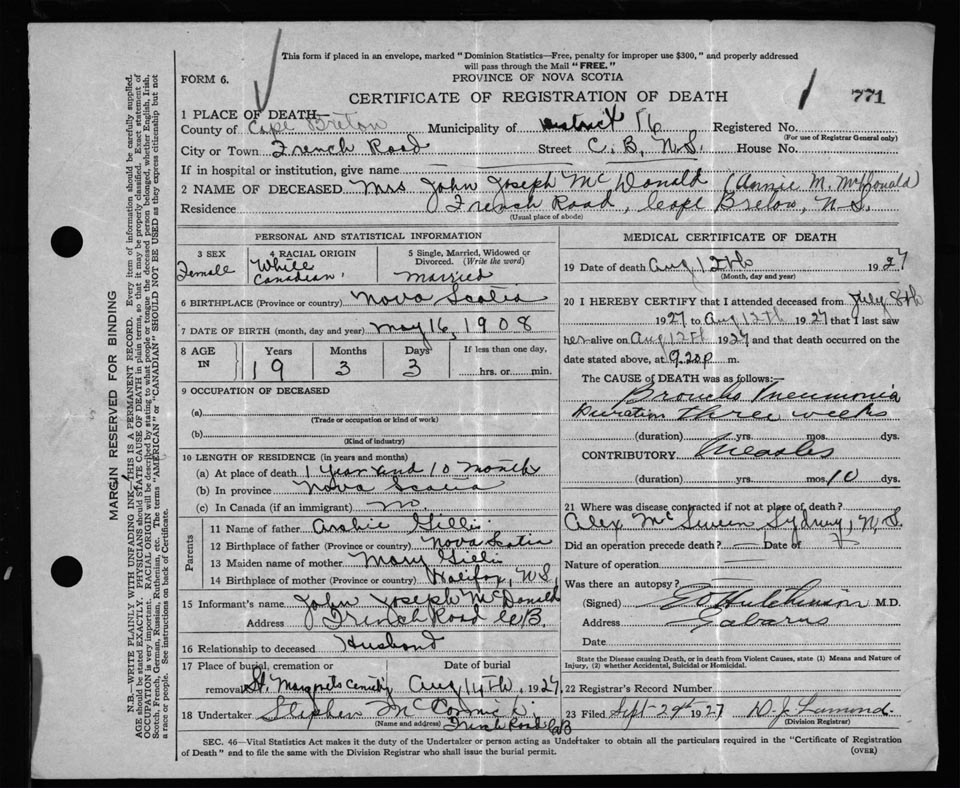 This form if placed in an envelope, marked "Dominion Statistics—Free, penalty for improper use $300," and properly addressed
will pass through the Mail "FREE."
FORM 6.
PROVINCE OF NOVA SCOTIA
CERTIFICATE OF REGISTRATION OF DEATH
771
1 PLACE OF DEATH—
County of Cape Breton Municipality of district 16 Registered No.
(For use of Registrar General only)
City or Town French Road Street C. B. N.S. House No.
If in hospital or institution, give name
2 NAME OF DECEASED Mrs John Joseph McDonald (Annie M. McDonald)
Residence French Road, Cape Breton, N.S.
(Usual place of abode)
PERSONAL AND STATISTICAL INFORMATION
3 SEX 4 RACIAL ORIGIN 5 Single, Married, Widowed or Divorced. (Write the word)
Femall White Canadian Married
6 BIRTHPLACE (Province or country) Nova Scotia
7 DATE OF BIRTH (month, day and year) May 16, 1908
8 AGE IN Years Months Days If less than one day,
19 3 3 hrs. or min.
9 OCCUPATION OF DECEASED
(a)
(Trade or occupation or kind of work)
(b)
(Kind of industry)
10 LENGTH OF RESIDENCE (in years and months)
(a) At place of death 1 Year and 10 months
(b) In province Nova Scotia
(c) In Canada (if an immigrant)
Parents
11 Name of father Archie Gillis
12 Birthplace of father (Province or country) Nova Scotia
13 Maiden name of mother Mary Gillis
14 Birthplace of mother (Province or country) Halifax, N.S.
15 Informant's name John Joseph McDonald
Address French Road C.B.
16 Relationship to deceased Husband
17 Place of burial, cremation or Date of burial
removal St. Margrets Aug 14th, 1927
18 Undertaker Stephen
(Name and address) French Road CB
MEDICAL CERTIFICATE OF DEATH
19 Date of death Aug 12th 1927
(Month, day and year)
20 I HEREBY CERTIFY that I attended deceased from July 8th
1927 to Aug 12th 1927 that I last saw
her alive on Aug 12th 1927 and that death occurred on the
date stated above, at 9.20 p m.
The CAUSE OF DEATH was as follows:—
Broncho Pneumonia
Duration three weeks
(duration) yrs. mos. dys.
CONTRIBUTORY Measles
(duration) yrs. mos. 10 dys.
21 Where was disease contracted if not at place of death?
Alex McSween Sydney, N.S.
Did an operation precede death? — Date of
Nature of operation
Was there an autopsy?
(Signed) Hutchinson M.D.
Address Gabarus
Date
State the Disease causing Death, or in death from Violent Causes, state (1) Means and Nature of
Injury, (2) whether Accidental, Suicidal or Homicidal.
22 Registrar's Record Number
23 Filed Sept 29th 1927
(Division Registrar)
SEC. 46—Vital Statistics Act makes it the duty of the Undertaker or person acting as Undertaker to obtain all the particulars required in the "Certificate of Registration
of Death" and to file the same with the Division Registrar who shall issue the burial permit. (OVER)
MARGIN RESERVED FOR BINDING
N.B.—WRITE PLAINLY WITH UNFADING INK—THIS IS A PERMANENT RECORD. Every item of information should be carefully supplied.
AGE should be stated EXACTLY. PHYSICIANS should STATE CAUSE OF DEATH in plain terms, so that it may be properly classified. Exact statement of
OCCUPATION is very important. RACIAL ORIGIN will be described by stating to what people or tongue the deceased person belonged, whether English, Irish,
Scotch, French, German, Russian, Ruthenian, etc. The terms "AMERICAN" or "CANADIAN" SHOULD NOT BE USED as they express citizenship but not
a race or people. See instructions on back of Certificate.